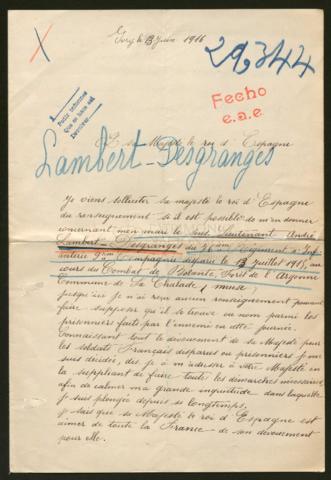 le 13 Juin 1916
29,344
Fecho
e.a.e.
Pedir informes
Que se hable así
A sa Majesté le roi d'Espagne
Lambert-Desgranges
Je viens solliciter sa majesté le roi d'Espagne
du renseignement si il est possible de m'en donner
concernant mon mari le Sous Lieutenant André
Lambert - Desgranges du Régiment d'Infanterie
Compagnie disparu le 13 Juillet 1915, au
cours du Combat de Bolante, Forêt de l'Argonne
Commune de La Chalade, meuse
jusqu'ici je n'ai reçu aucun renseignement pouvant
faire supposer qu'il se trouve au nom parmi les
prisonniers faits par l'ennemi en cette journée.
Connaissant tout le dévouement de sa Majesté pour
les soldats Français disparus ou prisonniers je me
suis décidée, de m'adresser à votre Majesté en
la suppliant de faire toutes les démarches
afin de calmer ma grande inquiétude dans laquelle
je suis plongée depuis si longtemps.
je sais que sa Majesté le roi d'Espagne est
aimer de toute la France - de son dévouement
pour elle.